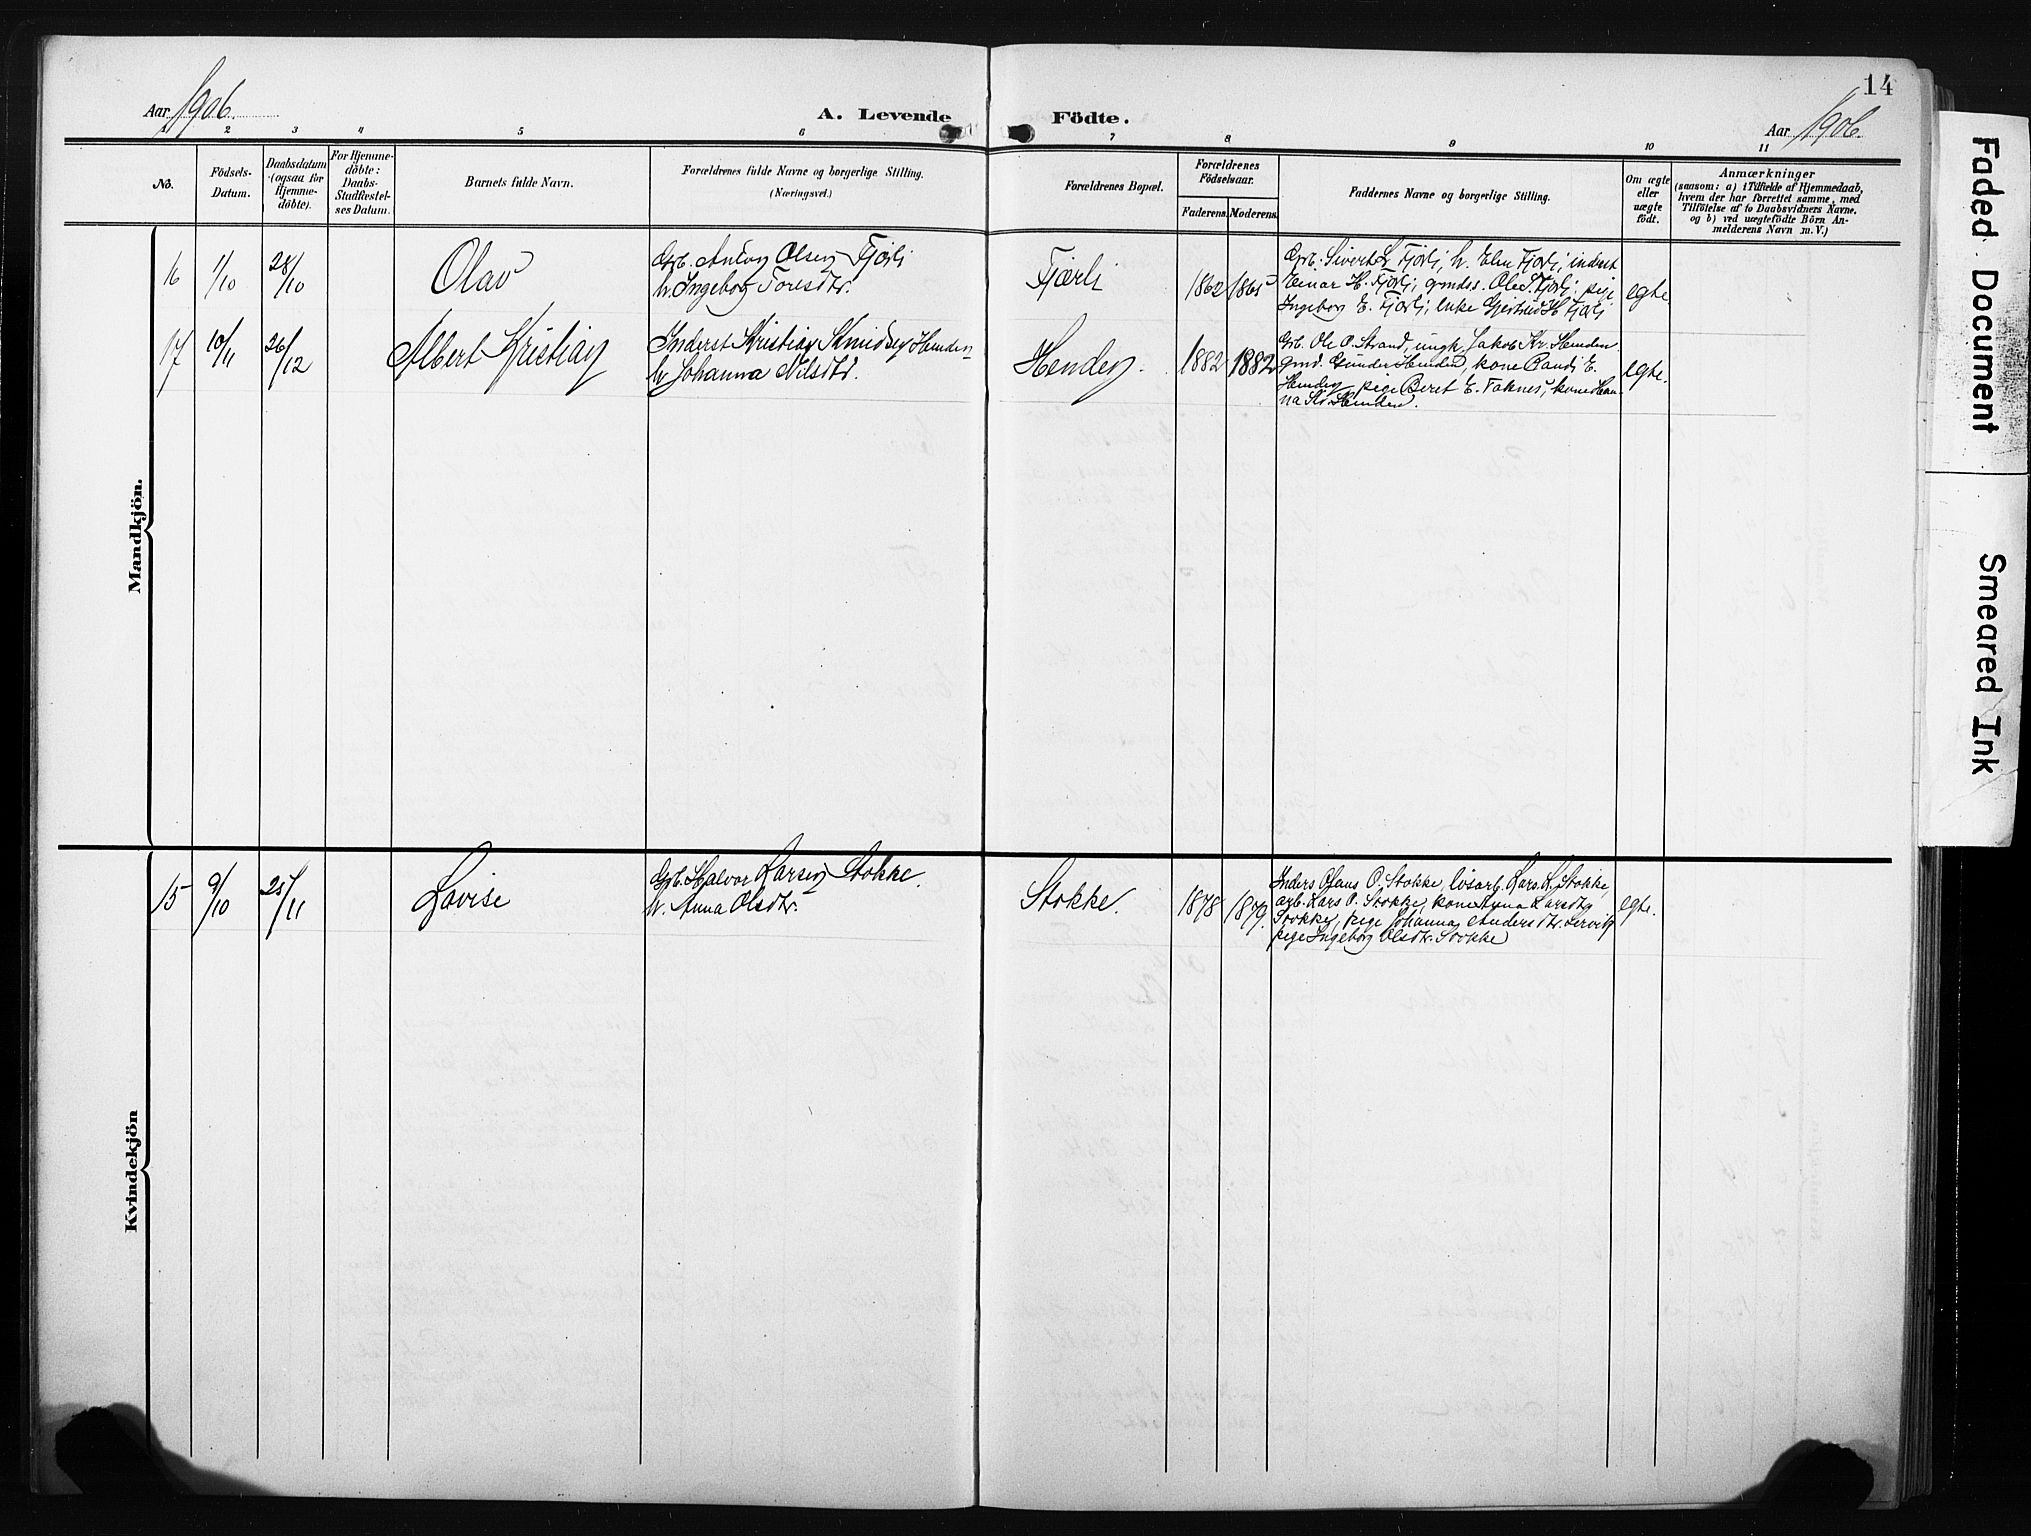 14
Aar 1906.
A. Levende Födte.
Aar 1906.
1 2 3 4 5 6 7 8 9 10 11
No.
Födsels-
Datum.
Daabsdatum
(ogsaa for
Hjemme-
döbte).
For Hjemme-
döbte:
Daabs-
Stadfæstel-
ses Datum.
Barnets fulde Navn.
Forældrenes fulde Navne og borgerlige Stilling.
(Næringsvei.)
Forældrenes Bopæl.
Forældrenes
Födselsaar.
Faderens. Moderens.
Faddernes Navne og borgerlige Stilling.
Om ægte
eller
uægte
födt.
Anmærkninger
(saasom: a) i Tilfælde af Hjemmedaab,
hvem der har forrettet samme, med
Tilföielse af to Daabsvidners Navne,
og b) ved uægtefödte Börn An-
melderens Navn m. V.)
Mandkjön.
16 1/10 28/10 Olav
Grb. Anton Olsen Fjörli
h. Ingeborg Toresdtr.
Fjærli 1862 1865
Grb. Sivert L. Fjörli, h. Elen Fjörli, inderst
Einar H. Fjörli, grmds. Ole Fjörli, pige
Ingeborg E. Fjörli, enke Gjertrud H. Fjörli
egte
17 10/11 26/12 Albert Kristian
Inderst Kristian Knudsen Henden
h. Johanna Nilsdtr.
Henden. 1882 1882
Grb. Ole O. Strand, ungk. Jakob Kr. Henden
gmd. Gunder Henden, kone Randi E.
Henden, pige Beret E. Taknes, kone Han-
na Kr. Henden.
egte.
Kvindekjön
15 9/10 25/11 Lovise
Grb. Halvor Larsen Stokke.
h. Anna Olsdtr.
Stokke. 1878 1879.
Inders Claus O. Stokke, lösarb. Lars L. Stokke,
arb. Lars P. Stokke, kone Anna Larsdtr.
Stokke, pige Johanna Andersdtr. Lervik
pige Ingeborg Olsdtr. Stokke
egte.
Faded Document
Smeared Ink